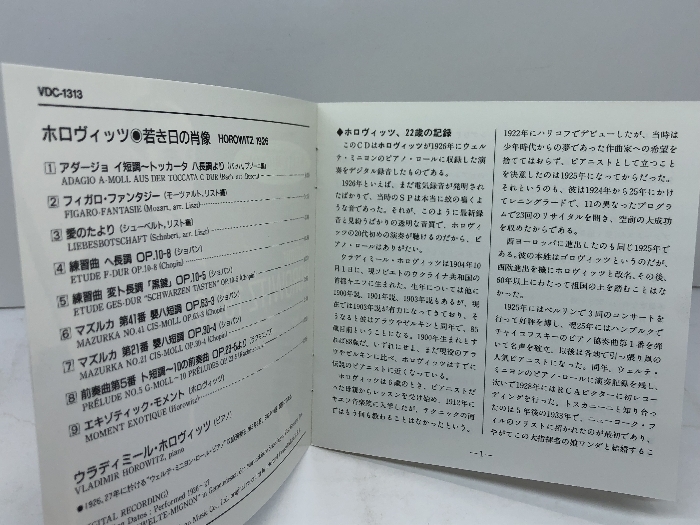 VDC-1313
ホロヴィッツ◉若き日の肖像 HOROWITZ 1926
1 アダージョ イ短調〜トッカータ ハ長調より
ADAGIO A-MOLL AUS DER TOCCATA C DUR
2 フィガロ・ファンタジー (モーツァルト、リスト編)
FIGARO-FANTASIE (Mozart, arr. Liszt)
3 愛のたより (シューベルト、リスト編)
LIEBESBOTSCHAFT (Schubert, arr. Liszt)
4 練習曲 ヘ長調 OP.10-8 (ショパン)
ETUDE F-DUR OP.10-8 (Chopin)
5 練習曲 変ト長調「黒鍵」OP.10-5 (ショパン)
ETUDE GES-DUR "SCHWARZEN TASTEN" OP.10-5 (Chopin)
6 マズルカ 第41番 嬰ハ短調 OP.63-3 (ショパン)
MAZURKA NO.41 CIS-MOLL OP.63-3 (Chopin)
7 マズルカ 第21番 嬰ハ短調 OP.30-4 (ショパン)
MAZURKA NO.21 CIS-MOLL OP.30-4 (Chopin)
8 前奏曲第5番 ト短調〜10の前奏曲 OP.23より
PRÉLUDE NO.5 G-MOLL〜10 PRÉLUDES OP.23
9 エキゾティック・モメント (ホロヴィッツ)
MOMENT EXOTIQUE (Horowitz)
ウラディミール・ホロヴィッツ (ピアノ)
VLADIMIR HOROWITZ, piano
◆ホロヴィッツ、22歳の記録
このCDはホロヴィッツが1926年にウェル
テ・ミニヨンのピアノ・ロールに収録した演
奏をデジタル録音したものである。
1926年といえば、まだ電気録音が発明され
たばかりで、当時のSPは本当に蚊の鳴くよ
うな音であった。それが、このように最新録
音と見紛うばかりの透明な音質で、ホロヴィ
ッツの20代初めの演奏が聴けるのだから、ピ
アノ・ロールはありがたい。
ウラディミール・ホロヴィッツは1904年10
月1日に、現ソビエトのウクライナ共和国の
首都キエフに生まれた。生年については他に
1900年説、1901年説、1903年説もあるが、現
在では1904年が有力になってきており、そ
うなると彼はアラウやゼルキンと同年で、85
歳目前ということになる。1900年生まれとす
れば88歳だ。いずれにせよ、まだ現役のアラ
ウやゼルキンに比べ、ホロヴィッツはすでに
伝説のピアニストに近くなっている。
ホロヴィッツは6歳のとき、ピアニストだ
った母親からレッスンを受け始め、1912年に
キエフ音楽院に入学したが、テクニックの面
ではもう何も教わることはなかったという。
1922年にハリコフでデビューしたが、当時は
少年時代からの夢であった作曲家への希望を
捨ててはおらず、ピアニストとして立つこと
を決意したのは1925年になってからだった。
それというのも、彼は1924から25年にかけ
てレニングラードで、11の異なったプログラ
ムで23回のリサイタルを開き、空前の大成功
を収めたからである。
西ヨーロッパに進出したのも同じ1925年で
ある。彼の本姓はゴロヴィッツというのだが、
西欧進出を機にホロヴィッツと改名、その後、
60年以上にわたって祖国の土を踏むことはな
かった。
1925年にはベルリンで3回のコンサートを
行って好評を博し、翌25年にはハンブルクで
チャイコフスキーのピアノ協奏曲第1番を弾
いて名声を確立、以後は各地で引っ張り凧の
人気ピアニストになった。同年、ウェルテ・
ミニヨンのピアノ・ロールに演奏記録を残し、
次いで1928年にはRCAビクターに初レコー
ディングを行った。トスカニーニと知り合っ
たのは5年後の1933年で、ニューヨーク・フ
ィルのソリストに招かれたのが最初であり、
やがてこの大指揮者の娘ワンダと結婚するこ
-1-